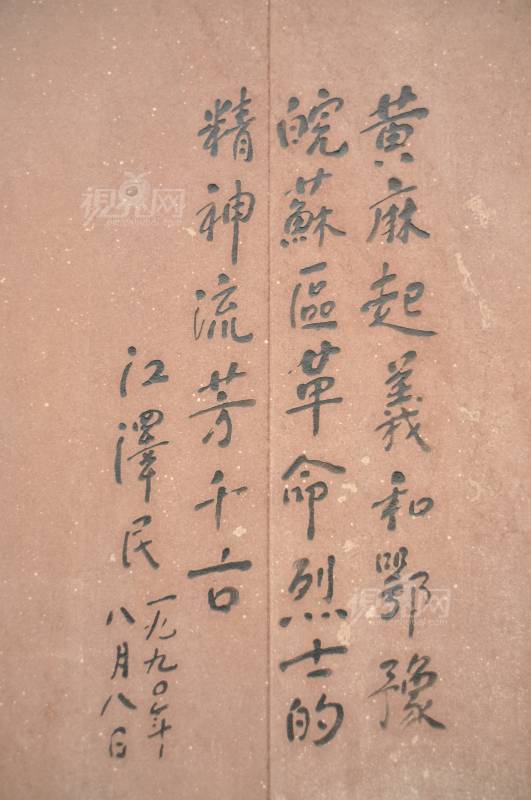 黄麻起義和鄂豫
皖蘇區革命烈士的
精神流芳千古
江澤民
一九九〇年
八月八日
視界网
視界网